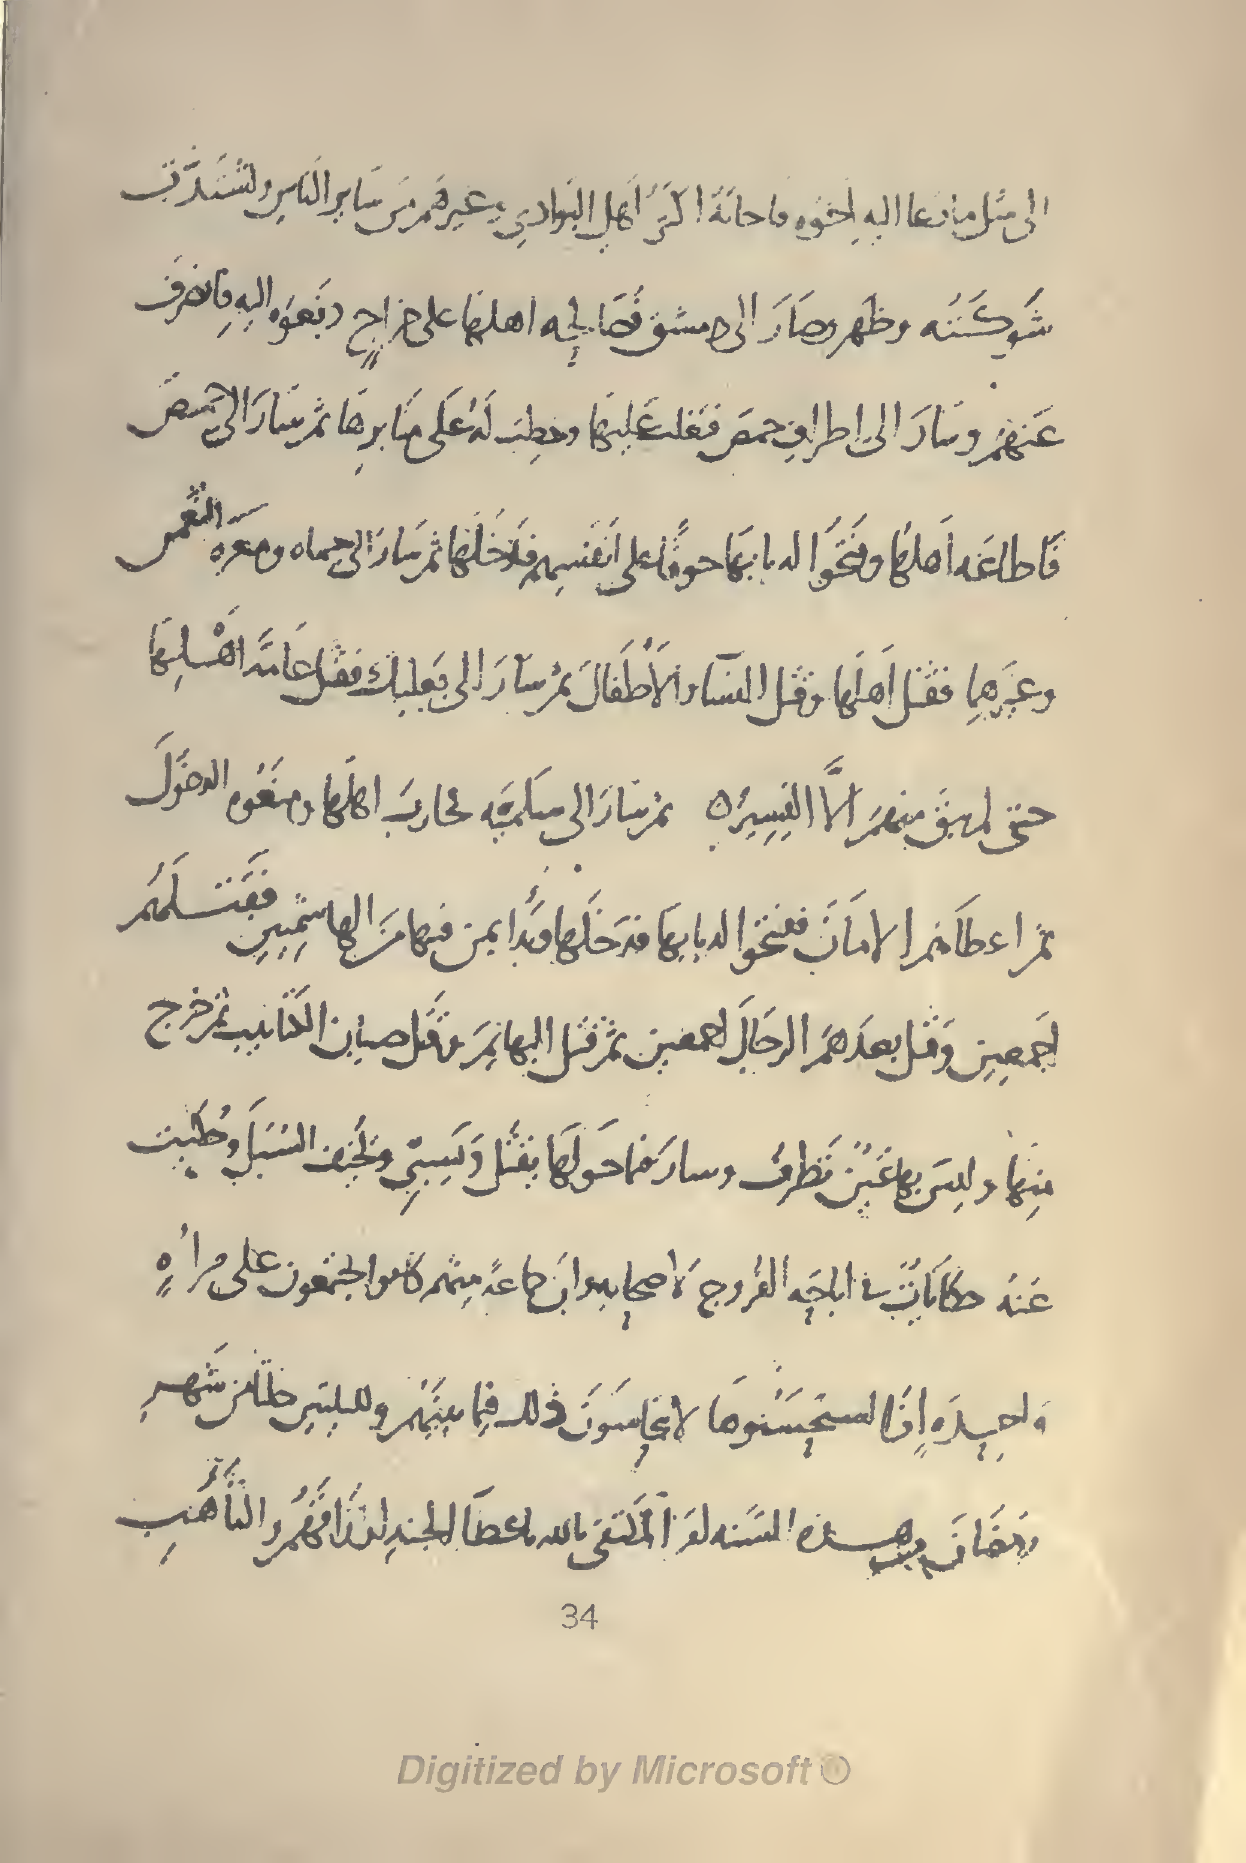 الى مثل ما دعا اليه اخوه فاجابه اكثر اهل البوادي وغيرهم من ساير الناس واشتدّت
شوكته وظهر وصار الى دمشق فصالحه اهلها على خراج دفعوه اليه فانصرف
عنهم وسار الى اطراف حمص فتغلب عليها وخطب له على منابرها ثم سار الى حمص
فاطاعه اهلها وفتحوا له بابها خوفًا على انفسهم فدخلها ثم سار الى حماه ومعره النعمن
وغيرهما فقتل اهلها وقتل النسآ والأطفال ثم سار الى بعلبك فقتل عامّة اهلها
حتى لم يبق منهم الّا اليسير ثم سار الى سلميه فحارب اهلها ومنعوه الدخول
ثم اعطاهم الامان ففتحوا له بابها فدخلها وبدأ بمن فيها من الهاشميين فقتلهم
اجمعين وقتل بعدهم الرجال اجمعين ثم قتل البهايم وقتل صبيان الكتاتيب ثم خرج
منها وليس بها عين تطرف وسار فيما حولها يقتل ويسبي ويخيف السبل وحكيت
عنه حكايات في اباحه الفروج لاصحابه وان جماعة منهم كانوا يجتمعون على مراه
واحده اذا استحسنوها لا يتحاشون ذلك فيما بينهم ولليلتين خلتا من شهر
رمضان من هذه السنه امر المكتفى بالله باعطا الجند ارزاقهم والتأهب
34
Digitized by Microsoft ®